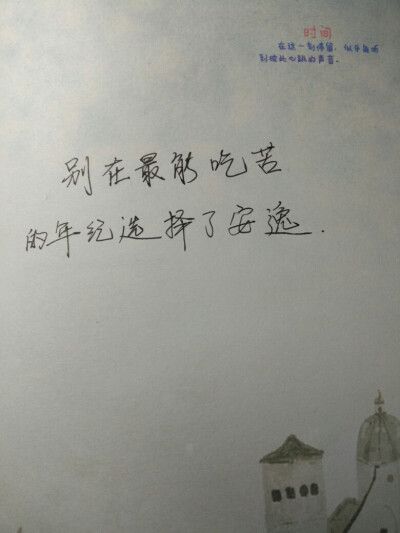 时间
在这一刻停留,似乎能听
到彼此心跳的声音。
别在最能吃苦
的年纪选择了安逸.